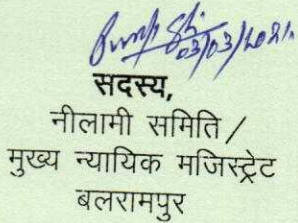 03/03/2021.
सदस्य,
नीलामी समिति /
मुख्य न्यायिक मजिस्ट्रेट
बलरामपुर